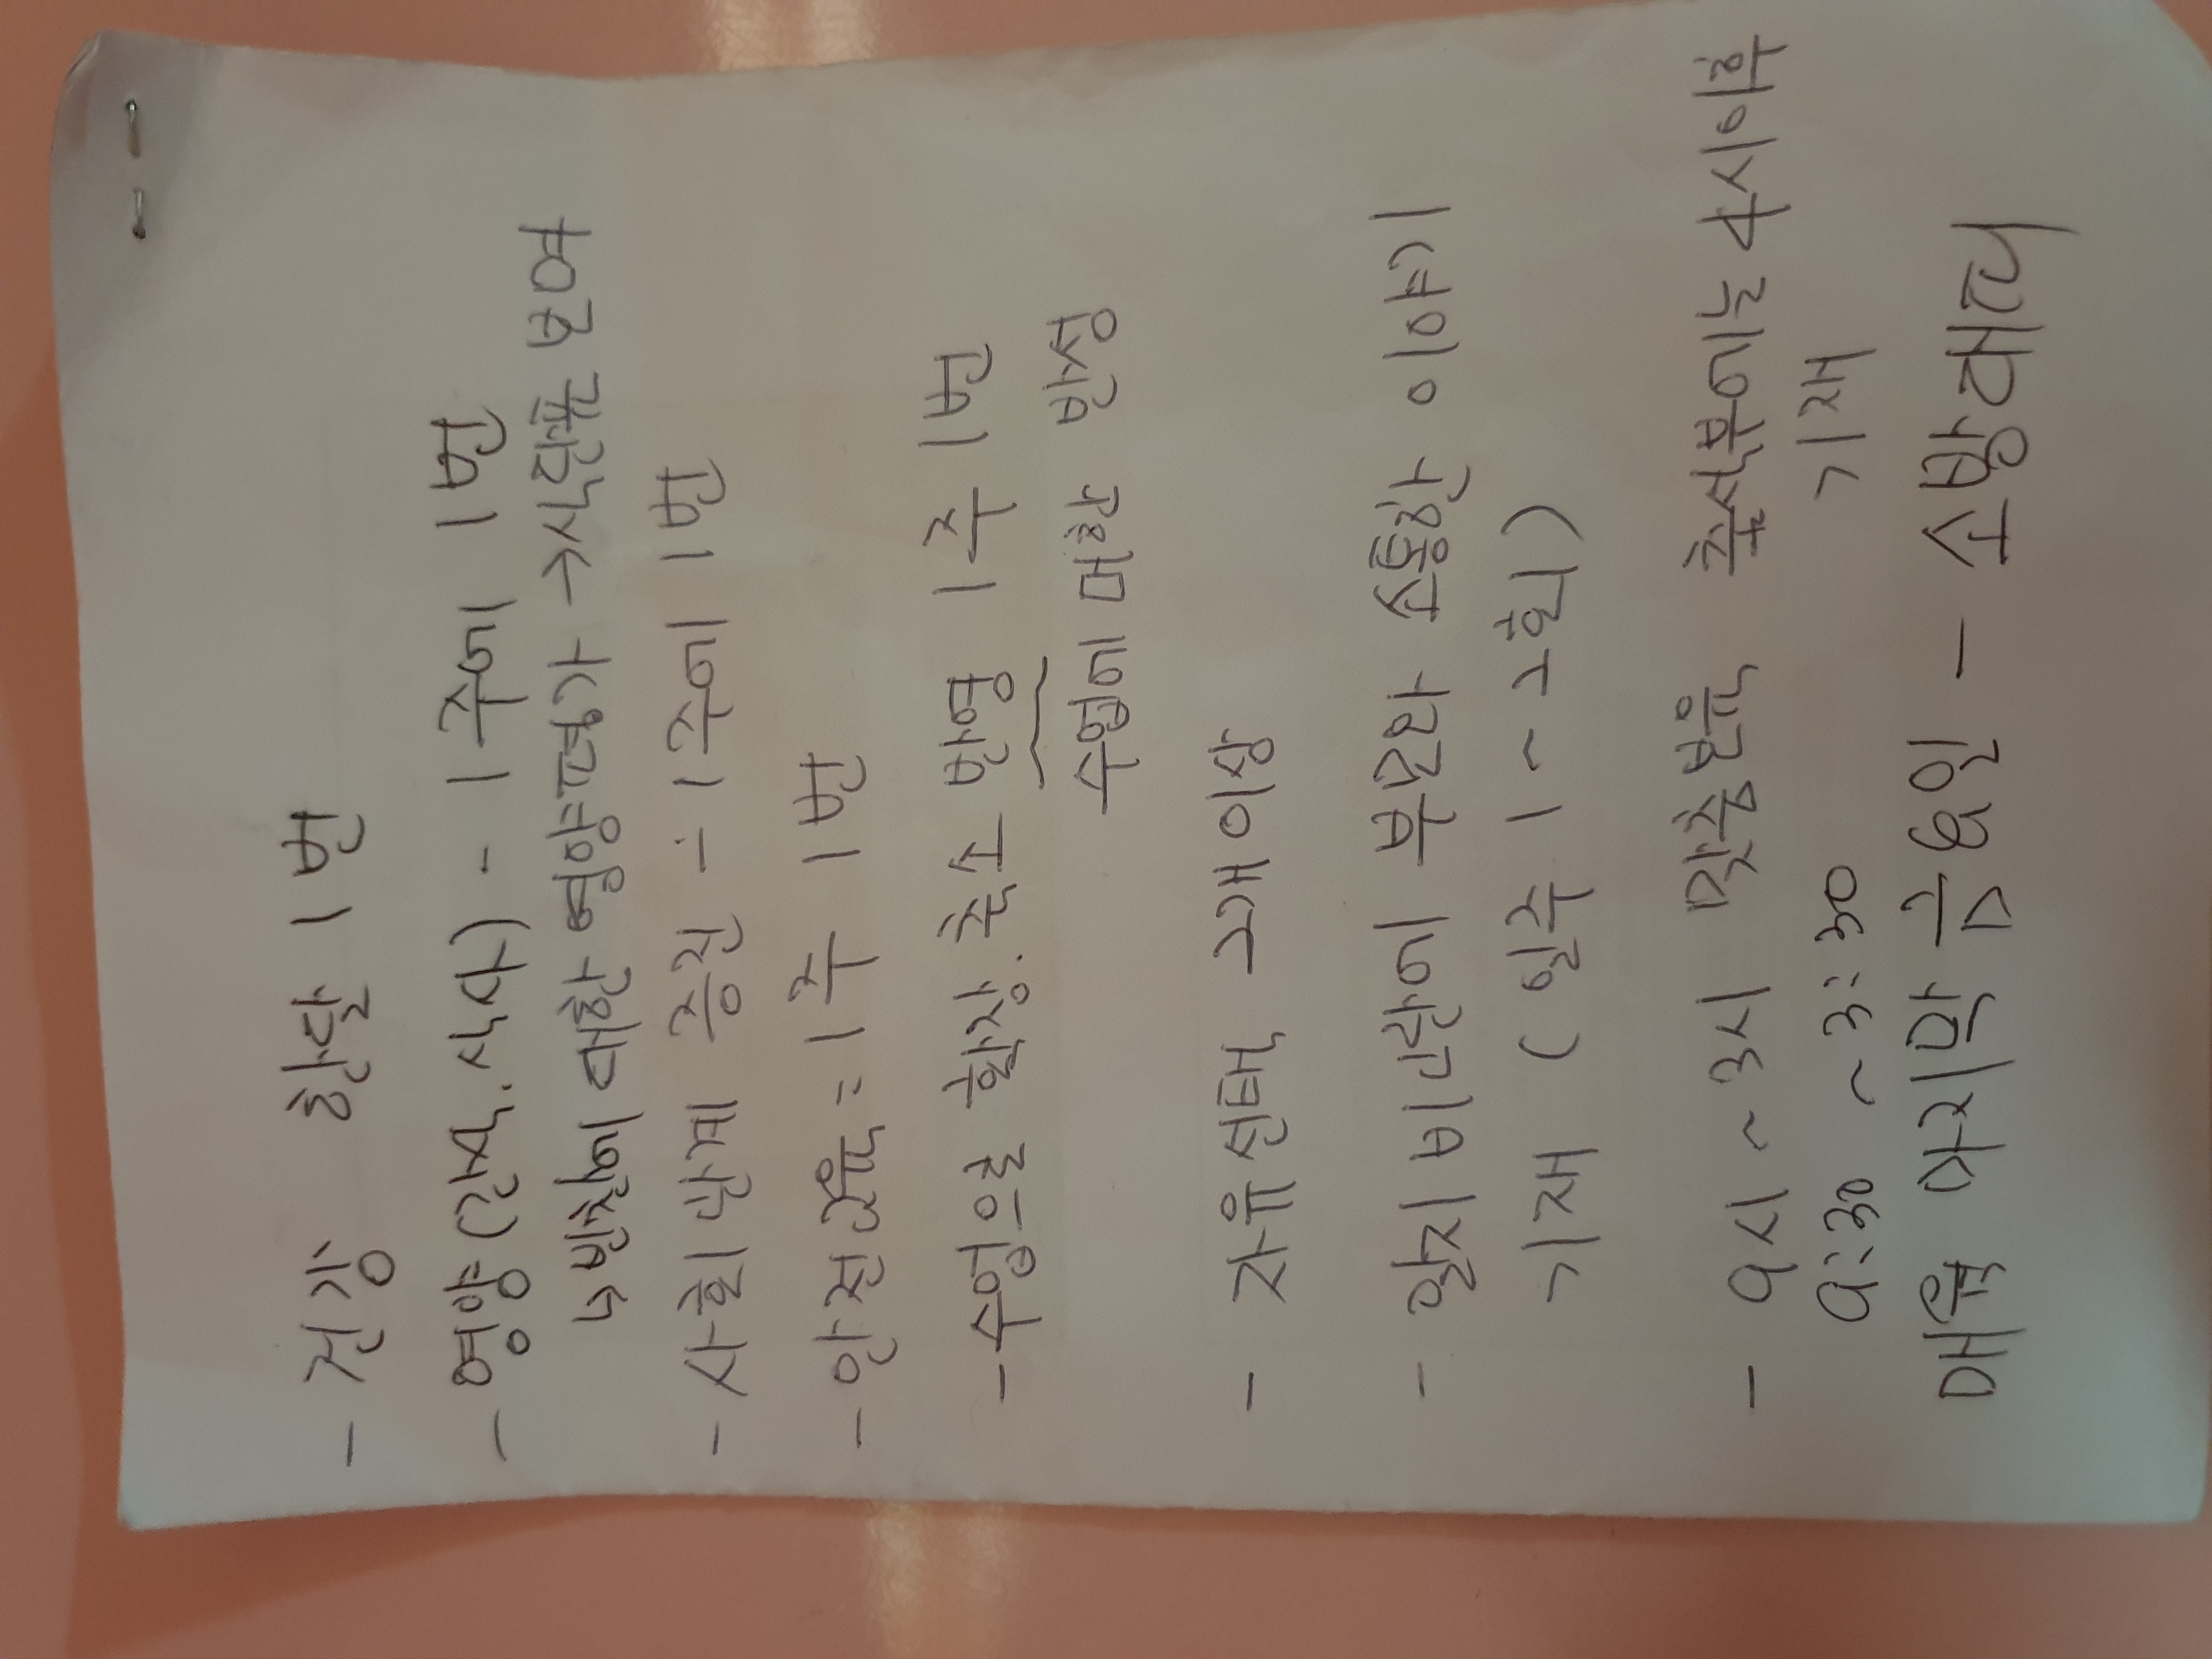 - 건강 한달 1번
- 영양(간식.식사) - 1주에 1번
↳ 반찬에 대한 영양평가 → 식단표 보여
- 사회관계 증진 - 1주에 1번
- 안전교육 = 1주 1번
- 수업으로 확장.축소 반영 1주 1번
수업에 대한 반성
- 자유선택 2개이상
- 일지 비고란에 부모와 소통한 이야기
기재 (일주 1~2회)
- 9시~3시 맞춤보육 출석부에는 4시이후
9:30 ~ 3:30 기재
매월 마지막 금요일 - 소방대피